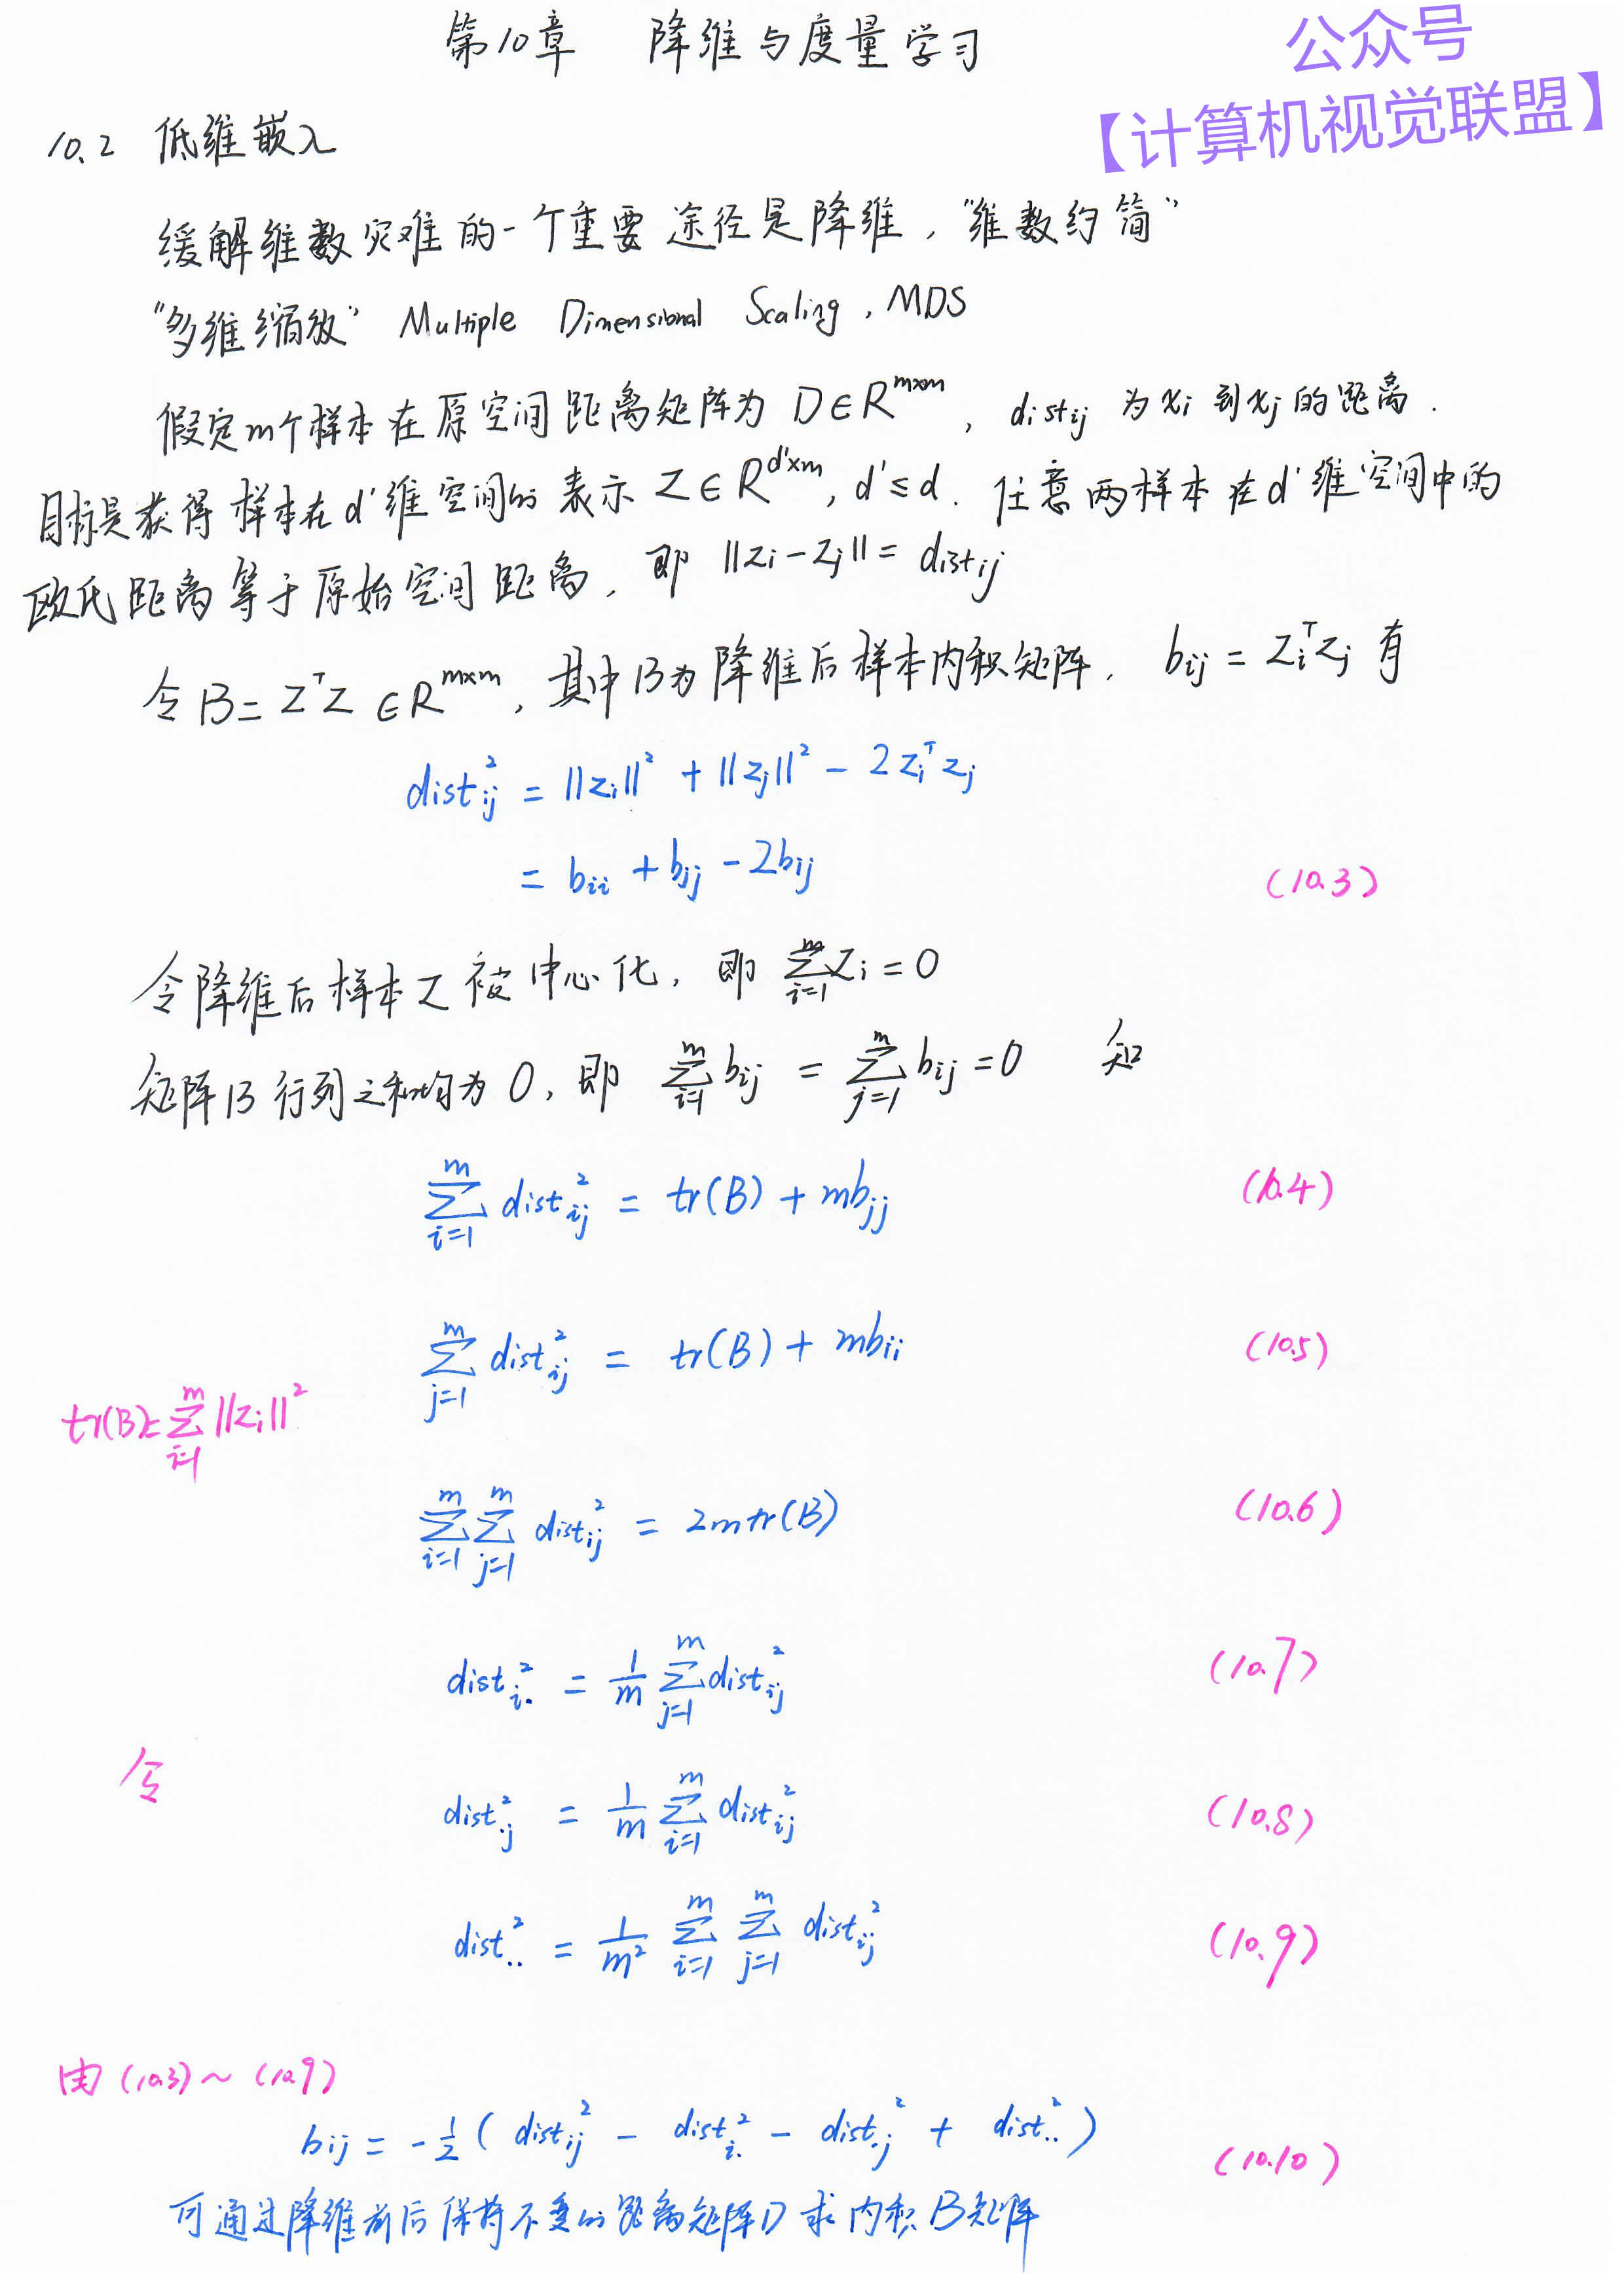 第10章 降维与度量学习
公众号
【计算机视觉联盟】
10.2 低维嵌入
缓解维数灾难的一个重要途径是降维，“维数约简”
“多维缩放” Multiple Dimensional Scaling, MDS
假定m个样本在原空间距离矩阵为 D∈R^{m×m}, dist_{ij} 为 x_i 到 x_j 的距离.
目标是获得样本在d'维空间的表示 Z∈R^{d'×m}, d'≤d. 任意两样本在d'维空间中的
欧氏距离等于原始空间距离, 即 ||z_i-z_j|| = dist_{ij}
令B=Z^TZ∈R^{m×m}, 其中B为降维后样本内积矩阵, b_{ij}=z_i^Tz_j 有
dist_{ij}^2 = ||z_i||^2 + ||z_j||^2 - 2z_i^Tz_j
= b_{ii} + b_{jj} - 2b_{ij} (10.3)
令降维后样本Z被中心化, 即 ∑_{i=1}^m z_i = 0
矩阵B行列之和均为0, 即 ∑_{i=1}^m b_{ij} = ∑_{j=1}^m b_{ij} = 0 知
∑_{i=1}^m dist_{ij}^2 = tr(B) + mb_{jj} (10.4)
∑_{j=1}^m dist_{ij}^2 = tr(B) + mb_{ii} (10.5)
tr(B)=∑_{i=1}^m ||z_i||^2
∑_{i=1}^m ∑_{j=1}^m dist_{ij}^2 = 2mtr(B) (10.6)
dist_{i.}^2 = \frac{1}{m} ∑_{j=1}^m dist_{ij}^2 (10.7)
令
dist_{.j}^2 = \frac{1}{m} ∑_{i=1}^m dist_{ij}^2 (10.8)
dist_{..}^2 = \frac{1}{m^2} ∑_{i=1}^m ∑_{j=1}^m dist_{ij}^2 (10.9)
由 (10.3)~(10.9)
b_{ij} = -\frac{1}{2}(dist_{ij}^2 - dist_{i.}^2 - dist_{.j}^2 + dist_{..}^2) (10.10)
可通过降维前后保持不变的距离矩阵D求内积B矩阵